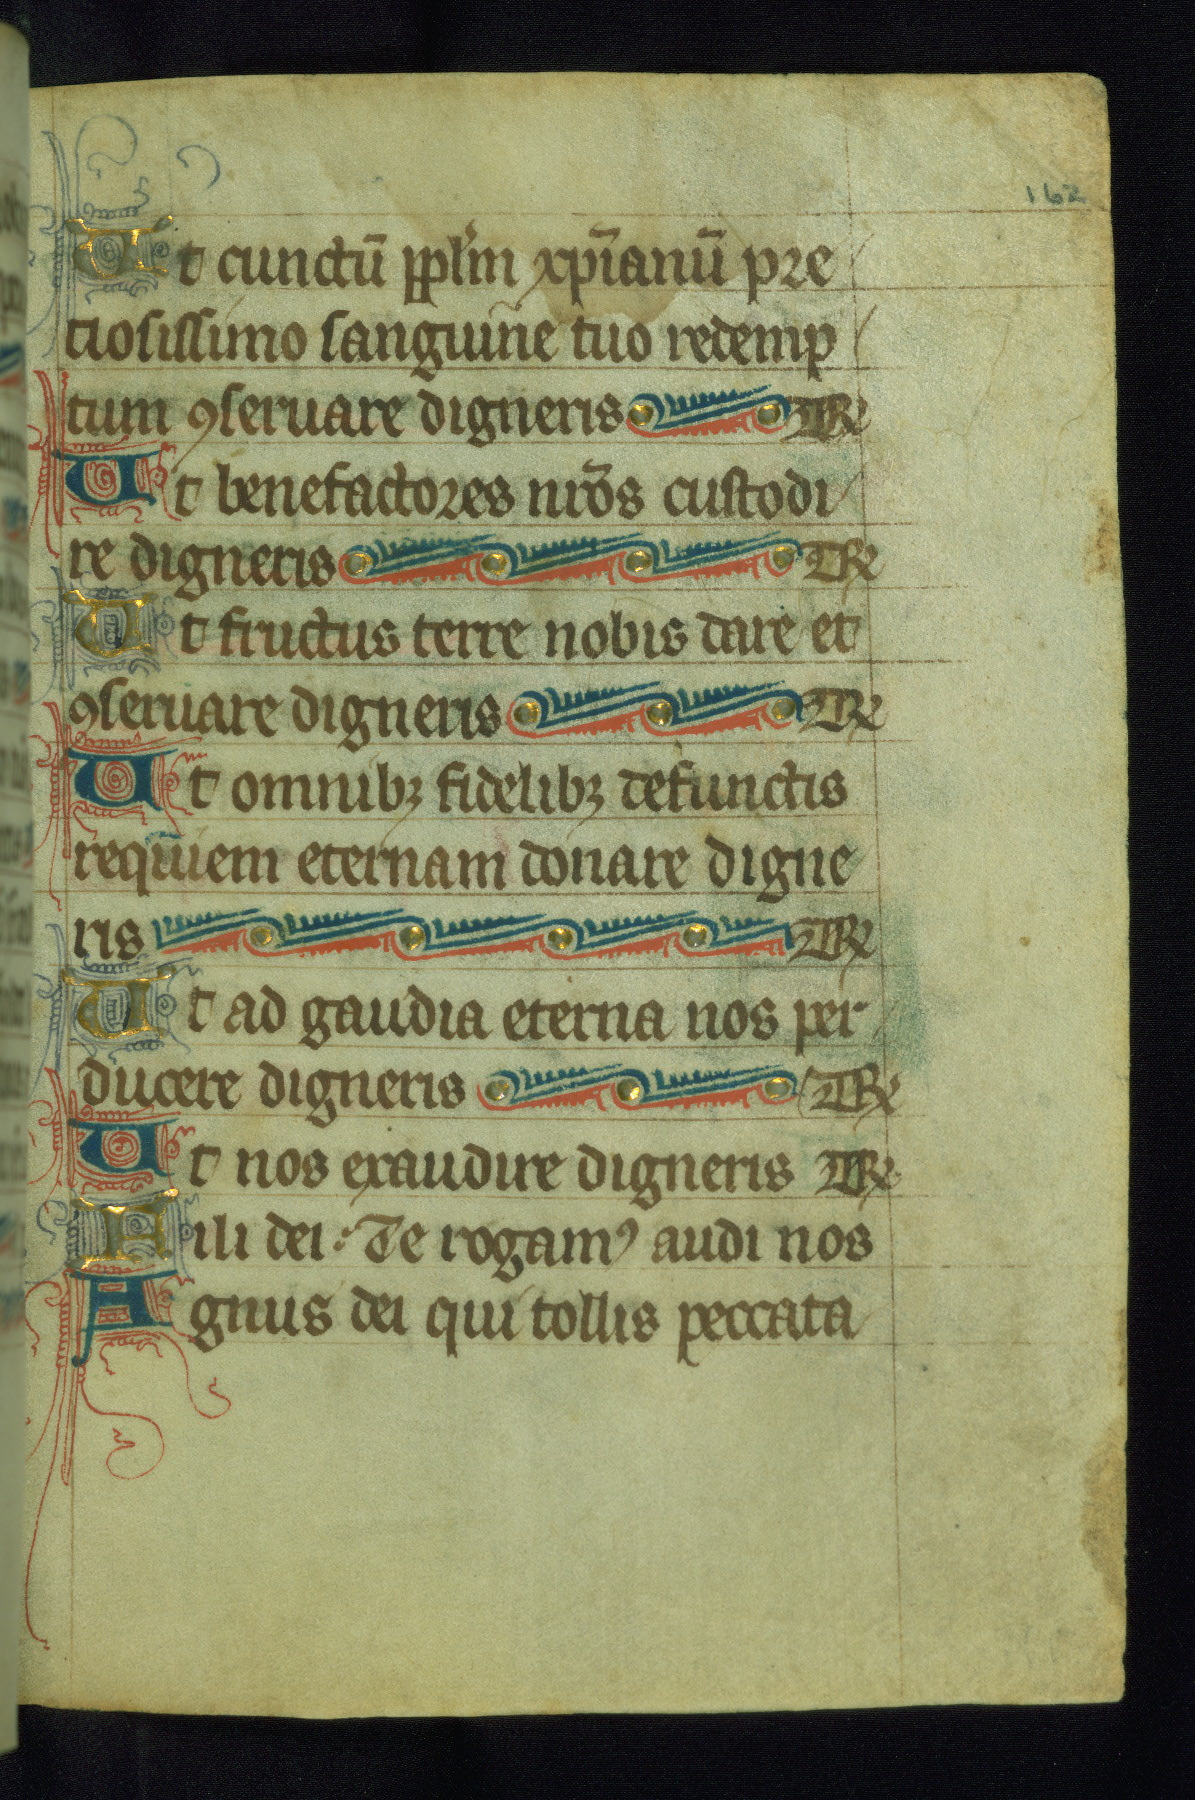 162
Ut cunctū pp̄lm xp̄ianū pre
ciosissimo sanguine tuo redemp
tum ꝯseruare digneris TR
Ut benefactores nr̄os custodi
re digneris TR
Ut fructus terre nobis dare et
ꝯseruare digneris TR
Ut omnibꝫ fidelibꝫ defunctis
requiem eternam donare digne
ris TR
Ut ad gaudia eterna nos per
ducere digneris TR
Ut nos exaudire digneris TR
Fili dei : Te rogamꝰ audi nos
Agnus dei qui tollis peccata